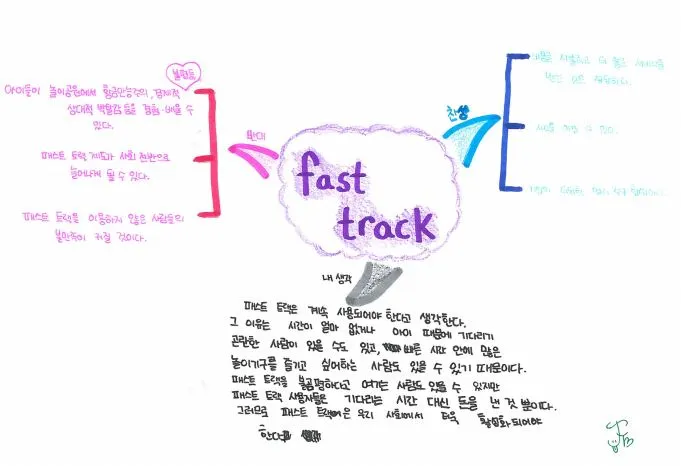 fast
track
반대
불평등
아이들이 놀이공원에서 황금만능주의, 경제적
상대적 박탈감 등을 경험·배울 수
있다.
패스트 트랙 제도가 사회 전반으로
늘어나게 될 수 있다.
패스트 트랙을 이용하지 않은 사람들의
불만족이 커질 것이다.
찬성
비용을 지불하고 더 좋은 서비스를
받는 것은 당연하다.
내 생각
패스트 트랙은 계속 사용되어야 한다고 생각한다.
그 이유는 시간이 얼마 없거나 아이 때문에 기다리기
곤란한 사람이 있을 수도 있고, 빠른 시간 안에 많은
놀이기구를 즐기고 싶어하는 사람도 있을 수 있기 때문이다.
패스트 트랙을 불공평하다고 여기는 사람도 있을 수 있지만
패스트 트랙 사용자들은 기다리는 시간 대신 돈을 낸 것 뿐이다.
그러므로 패스트 트랙은 우리 사회에서 더욱 활성화되어야
한다